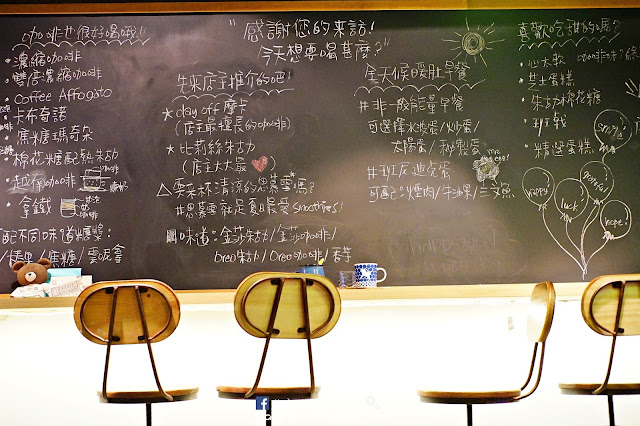 咖啡廿很好喝哦!!
濃縮咖啡
雙倍濃縮咖啡
Coffee Affogato
卡布奇諾
焦糖瑪奇朵
棉花糖配熱朱古力
越南咖啡
拿鐵
配不同味道糖漿:
焦糖/雲呢拿
"感謝您的來訪!
今天想要喝甚麼?"
先來店主推介的吧!
★ day off 摩卡
(店主最擅長的咖啡)
★ 比莉絲朱古力
(店主大大最❤)
△要來杯清涼的思慕雪嗎?
#思慕雪就是夏日最愛 smoothies!
味道:金莎朱古力/金莎咖啡/
Oreo朱古力/Oreo咖啡/香芋
全天候暖肚早餐
#非一般能量早餐
可選擇水波蛋/炒蛋/
太陽蛋/秘製蛋
#班尼迪克蛋
可配:煙肉/牛油果/三文魚
喜歡吃甜的嗎?
心太軟
芝士蛋糕
朱古力棉花糖
班戟
精選蛋糕
smile!
happy!
luck!
grateful!
hope!